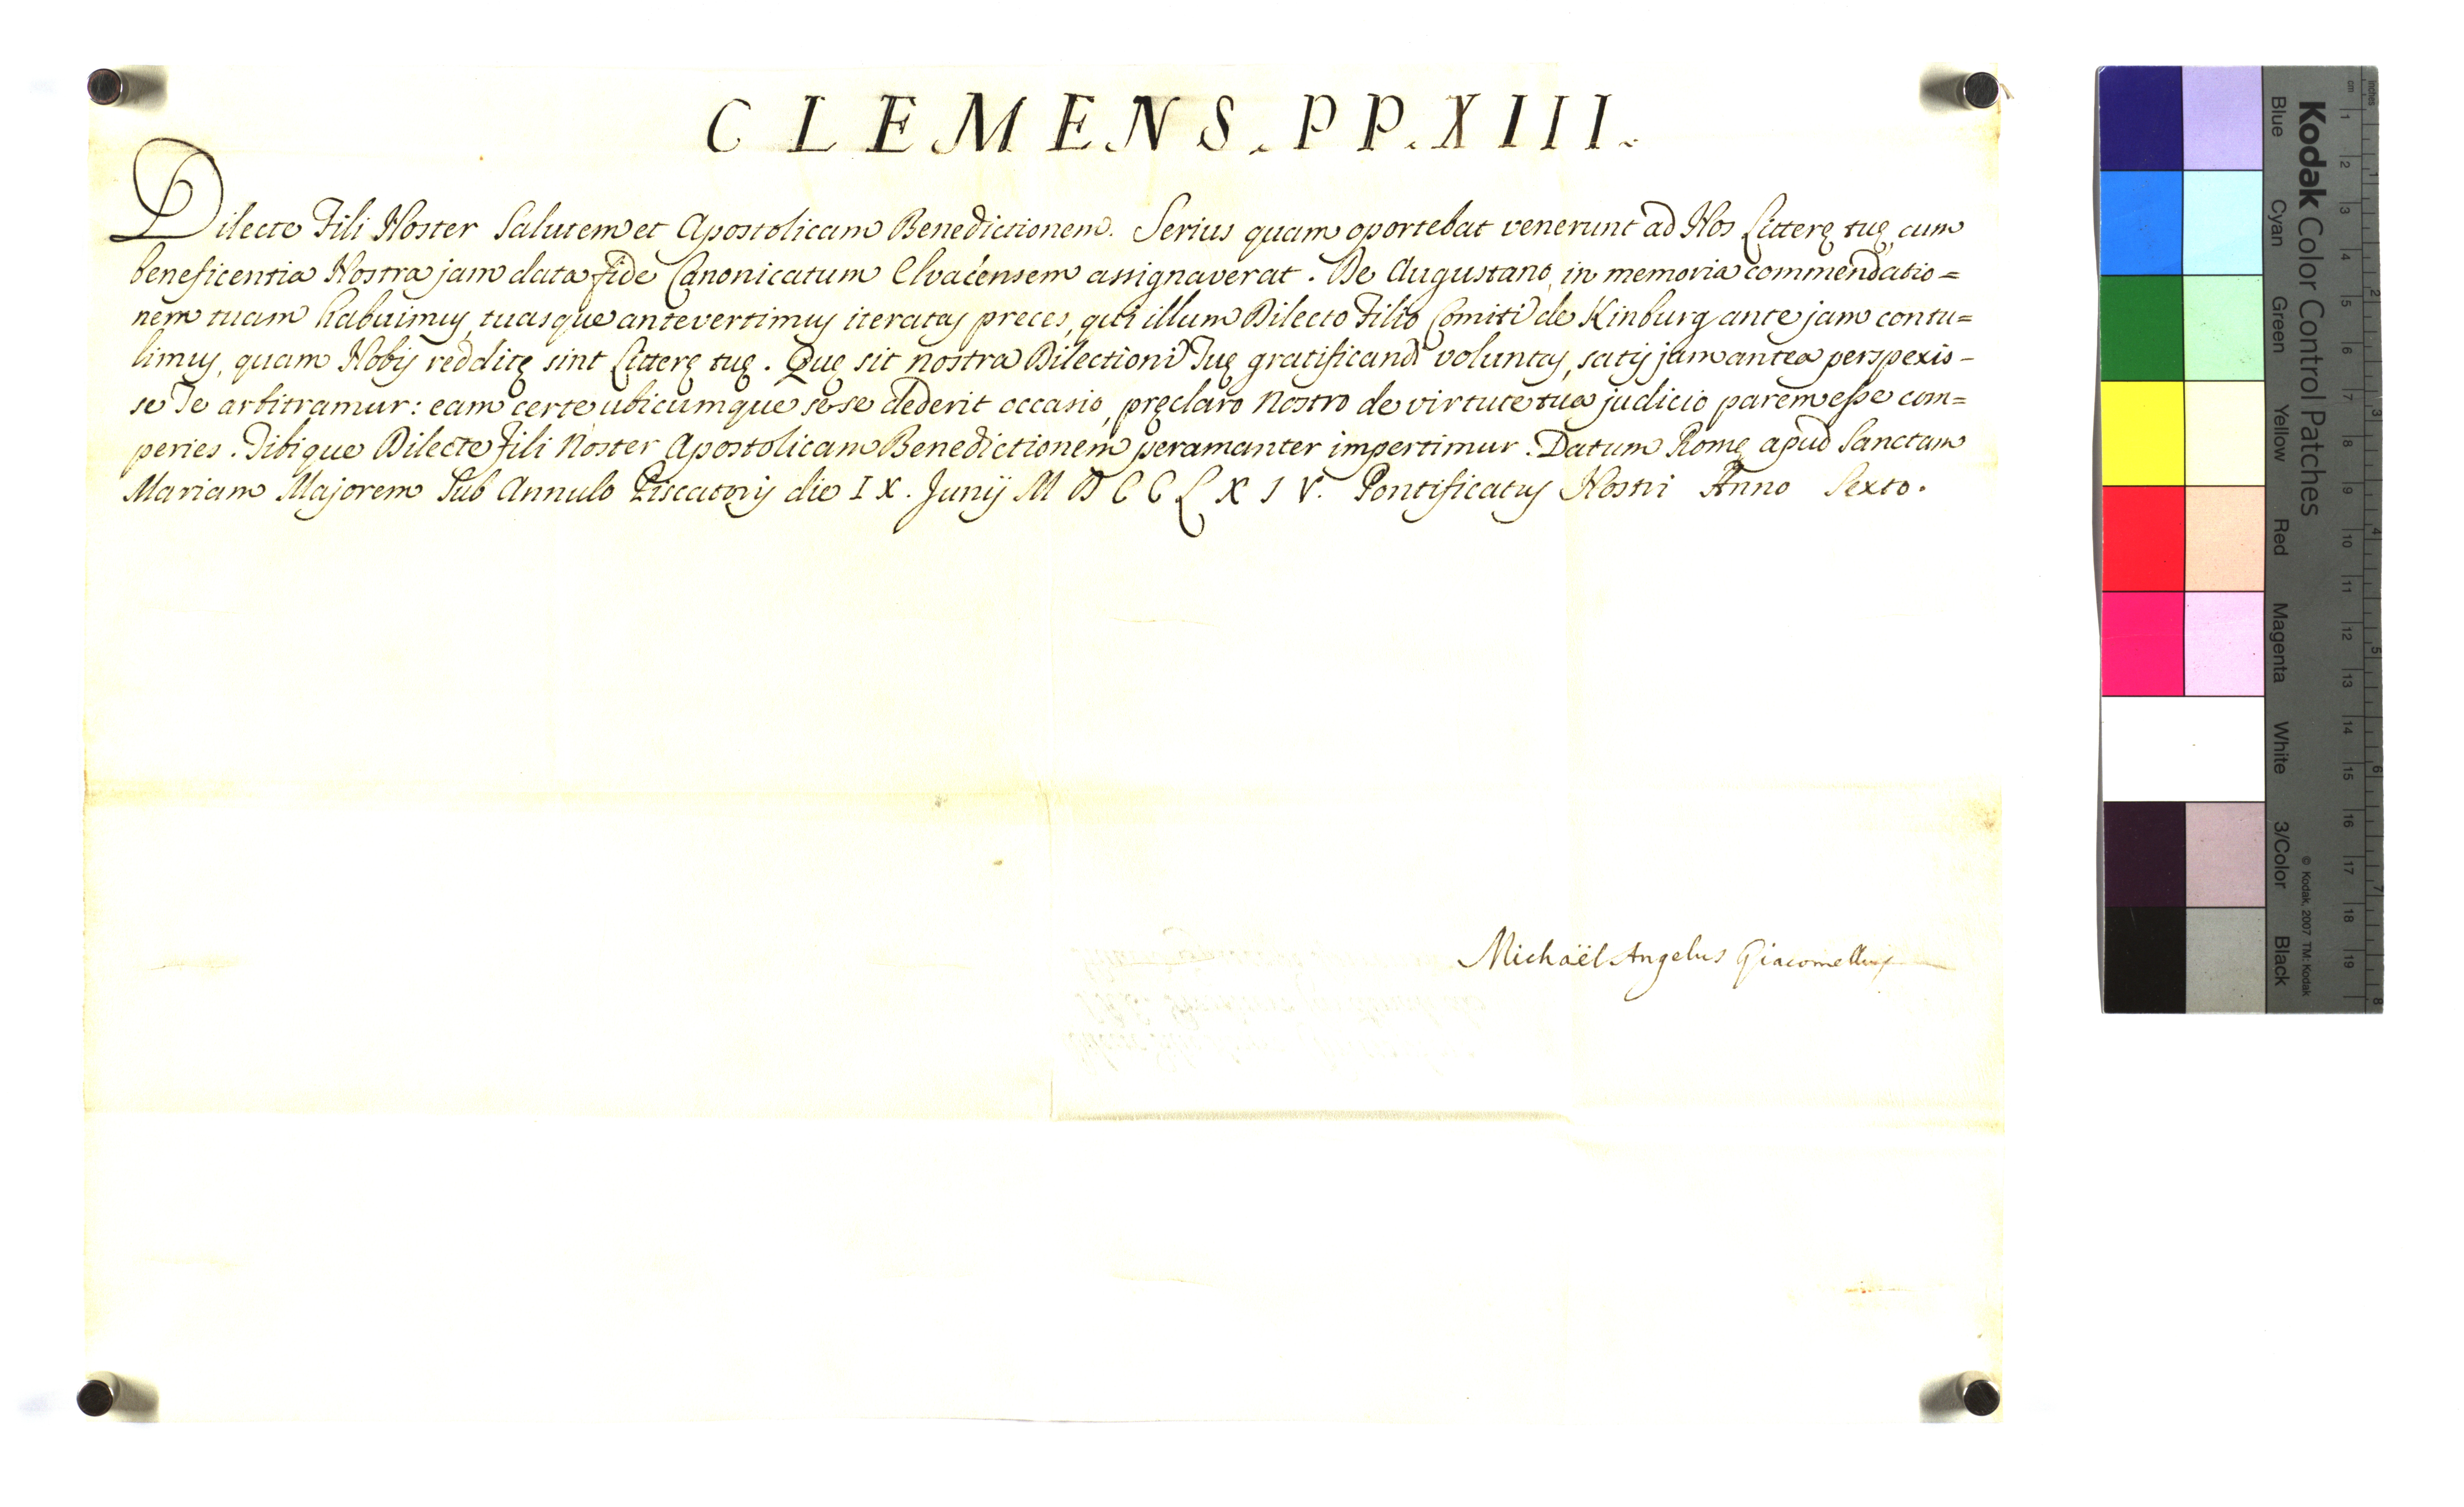 CLEMENS. PP. XIII.
Dilecte Fili Noster Salutem et Apostolicam Benedictionem. Serius quam oportebat venerunt ad Nos Litterę tuę, cum
beneficentia Nostra jam data fide Canonicatum Elvacensem assignaverat. De Augustano in memoria commendatio=
nem tuam habuimus, tuasque antevertimus iteratas preces, qui illum Dilecto Filio Comiti de Kinburg ante jam contu=
limus, quam Nobis redditę sint Litterę tuę. Quę sit nostra Dilectioni Tuę gratificandi voluntas, satis jam antea perspexis-
se Te arbitramur: eam certe ubicumque sese dederit occasio, pręclaro Nostro de virtute tua judicio parem esse com=
peries. Tibique Dilecte Fili Noster Apostolicam Benedictionem peramanter impertimur. Datum Romę apud Sanctam
Mariam Majorem Sub Annulo Piscatoris die IX. Junij MDCCLXIV. Pontificatus Nostri Anno Sexto.
Michaël Angelus Giacomellus
Kodak Color Control Patches
Blue Cyan Green Yellow Red Magenta White 3/Color Black
© Kodak, 2007 TM: Kodak
cm 1 2 3 4 5 6 7 8 9 10 11 12 13 14 15 16 17 18 19
inches 1 2 3 4 5 6 7 8